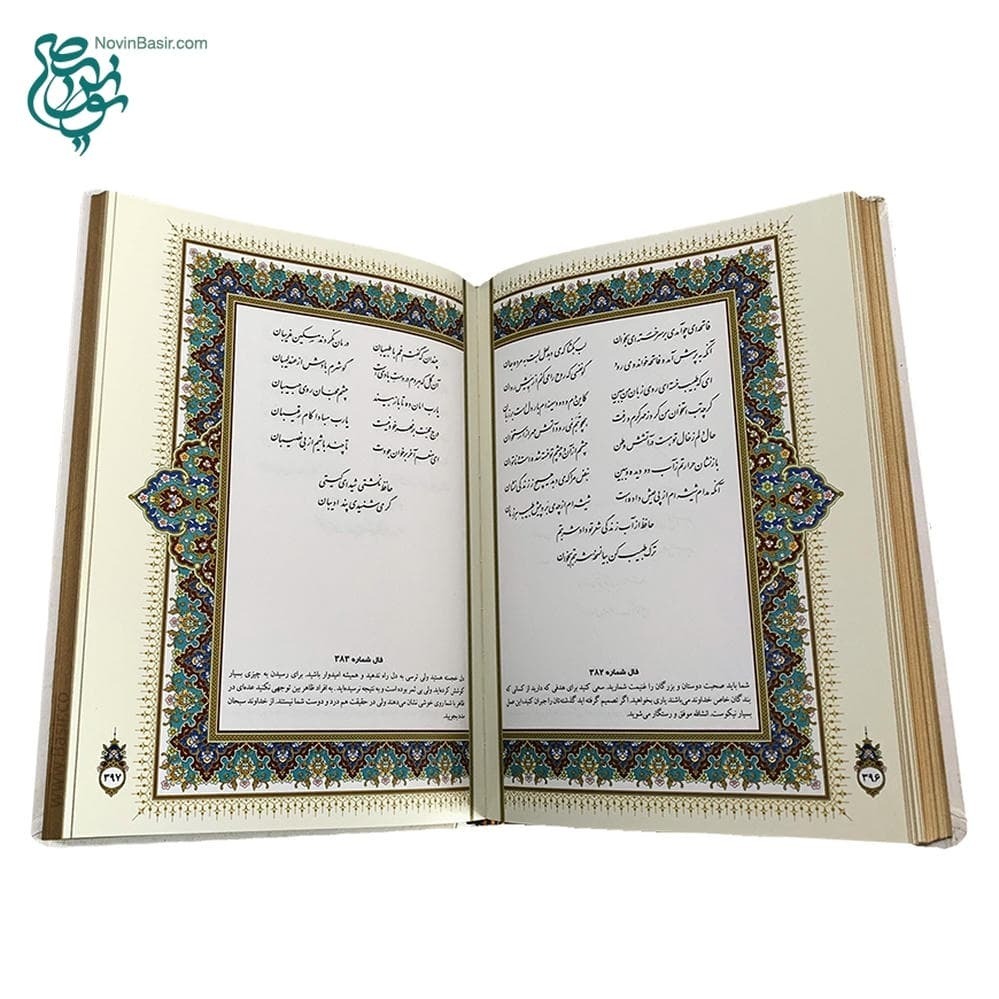 NovinBasir.com
فاتحه‌ای چو آمدی بر سر خسته‌ای بخوان لب بگشا که می‌دهد لعل لبت به مرده جان
آنکه به پرسش آمد و فاتحه خواند و می‌رود گو نفسی که روح را می‌کنم از پیش روان
ای که طبیب خسته‌ای روی زبان من ببین کاین دم و دود سینه‌ام بار دل است بر زبان
گرچه تب استخوان من کرد ز مهر گرم و رفت همچو تبم نمی‌رود آتش مهر از استخوان
حال دلم ز خال تو هست در آتشش وطن چشمم از آن دو چشم تو خسته شدست و ناتوان
باز نشان حرارتم ز آب دو دیده و ببین نبض مرا که می‌دهد هیچ ز زندگی نشان
آنکه مدام شیشه‌ام از پی عیش داده است شیشه‌ام از چه می‌برد پیش طبیب هر زمان
حافظ از آب زندگی شعر تو داد شربتم
ترک طبیب کن بیا نسخه شربتم بخوان
فال شماره ۳۸۲
شما باید صحبت دوستان و بزرگان را غنیمت شمارید. سعی کنید برای هدفی که دارید از کسانی که
بندگان خاص خداوند می‌باشند یاری بخواهید. اگر تصمیم گرفته اید گذشته‌تان را جبران کنید، این عمل
بسیار نیکوست. انشالله موفق و رستگار می‌شوید.
۳۹۶
چندان که گفتم غم با طبیبان درمان نکردند مسکین غریبان
آن گل که هر دم در دست بادیست گو شرم بادش از عندلیبان
یارب امان ده تا باز بیند چشم محبان روی حبیبان
درج محبت بر مهر خود نیست یارب مبادا کام رقیبان
ای منعم آخر بر خوان جودت تا چند باشیم از بی نصیبان
حافظ نگشتی شیدای گیتی
گر می‌شنیدی پند ادیبان
فال شماره ۳۸۳
دل خجسته هستید ولی ترسی به دل راه ندهید و همیشه امیدوار باشید. برای رسیدن به چیزی بسیار
کوشش کرده‌اید ولی بی ثمر بوده است و به نتیجه نرسیده‌اید. به افراد ظاهر بین توجهی نکنید عده‌ای در
ظاهر با شما روی خوشی نشان می‌دهند ولی در حقیقت هم درد و دوست شما نیستند. از خداوند سبحان
مدد بجویید.
۳۹۷